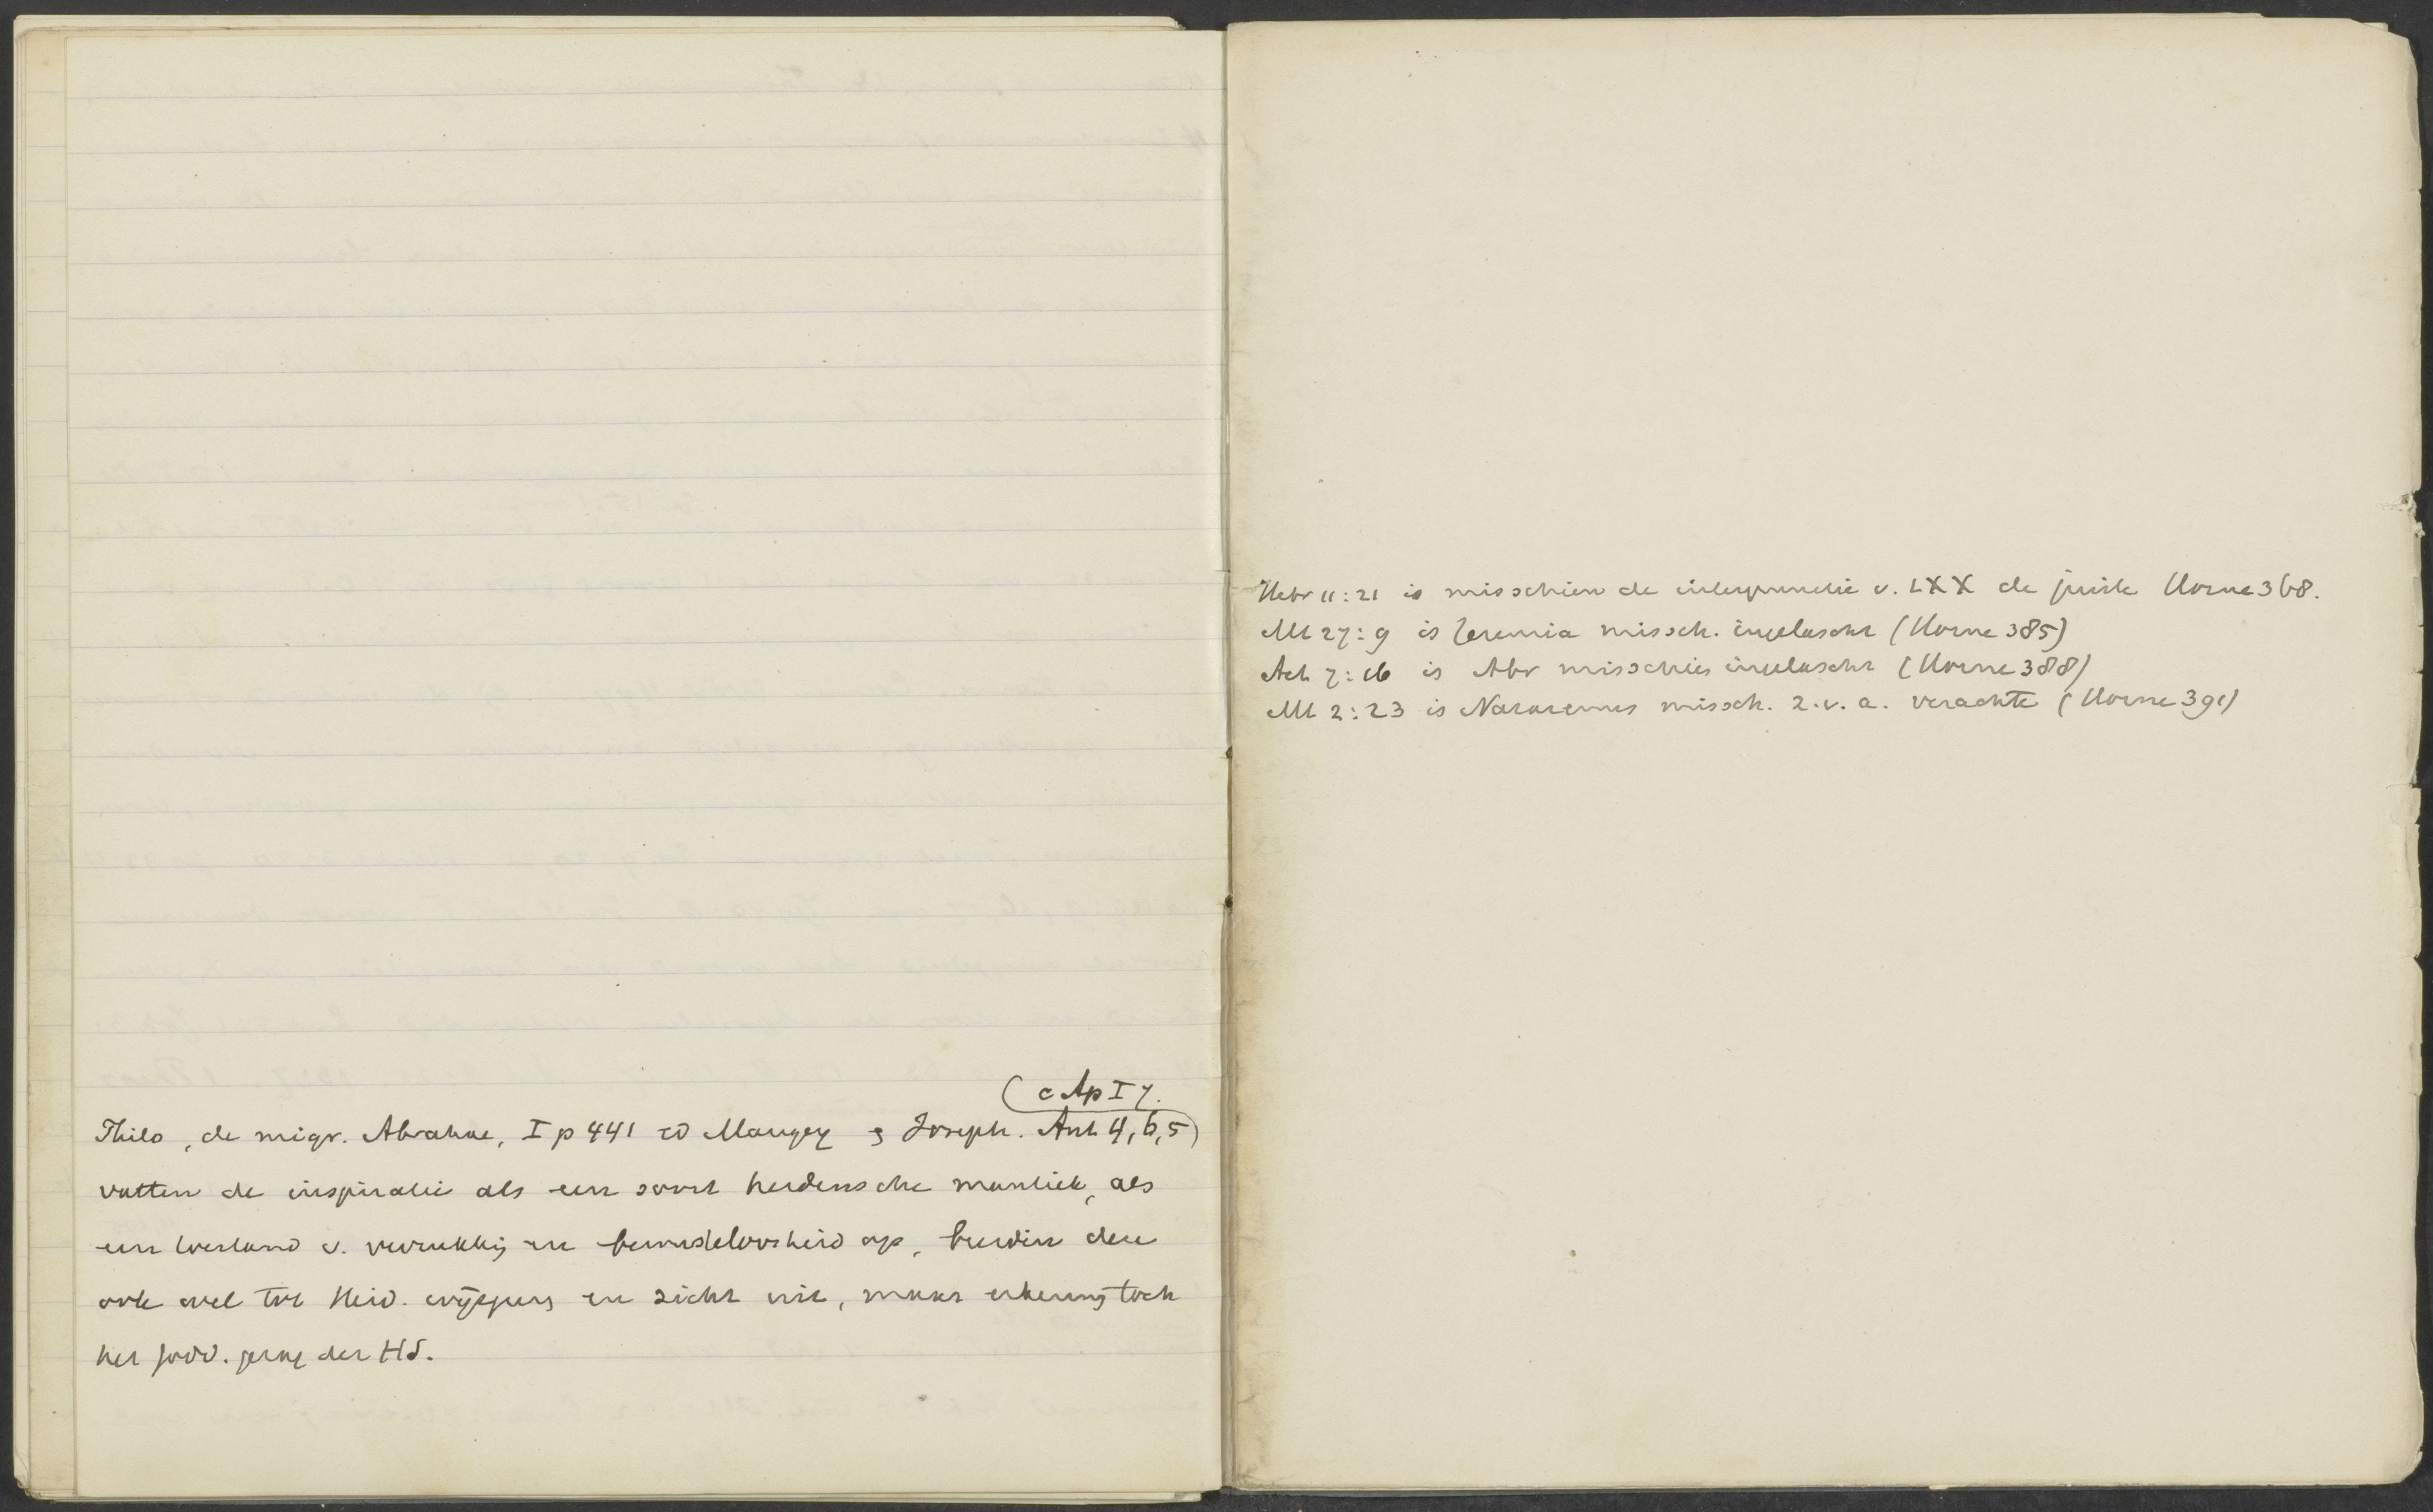 (c Ap I 7.
Philo, de migr. Abrahae, I p 441 ed Mangey & Joseph. Ant 4, 6, 5)
vatten de inspiratie als een soort heidensche mantiek, als
een toestand v. verrukking en bewusteloosheid op, breiden deze
ook wel tot Heid. wijsgeers en zich uit, maar erkenng toch
het godd. gezag der HS.
Hebr 11:21 is misschien de interpunctie v. LXX de juiste Horne 368.
Mt 27:9 is Jeremia missch. ingelascht (Horne 385)
Act 7:16 is Abr misschien ingelascht (Horne 388)
Mt 2:23 is Nazarenus missch. z.v.a. verachte (Horne 391)